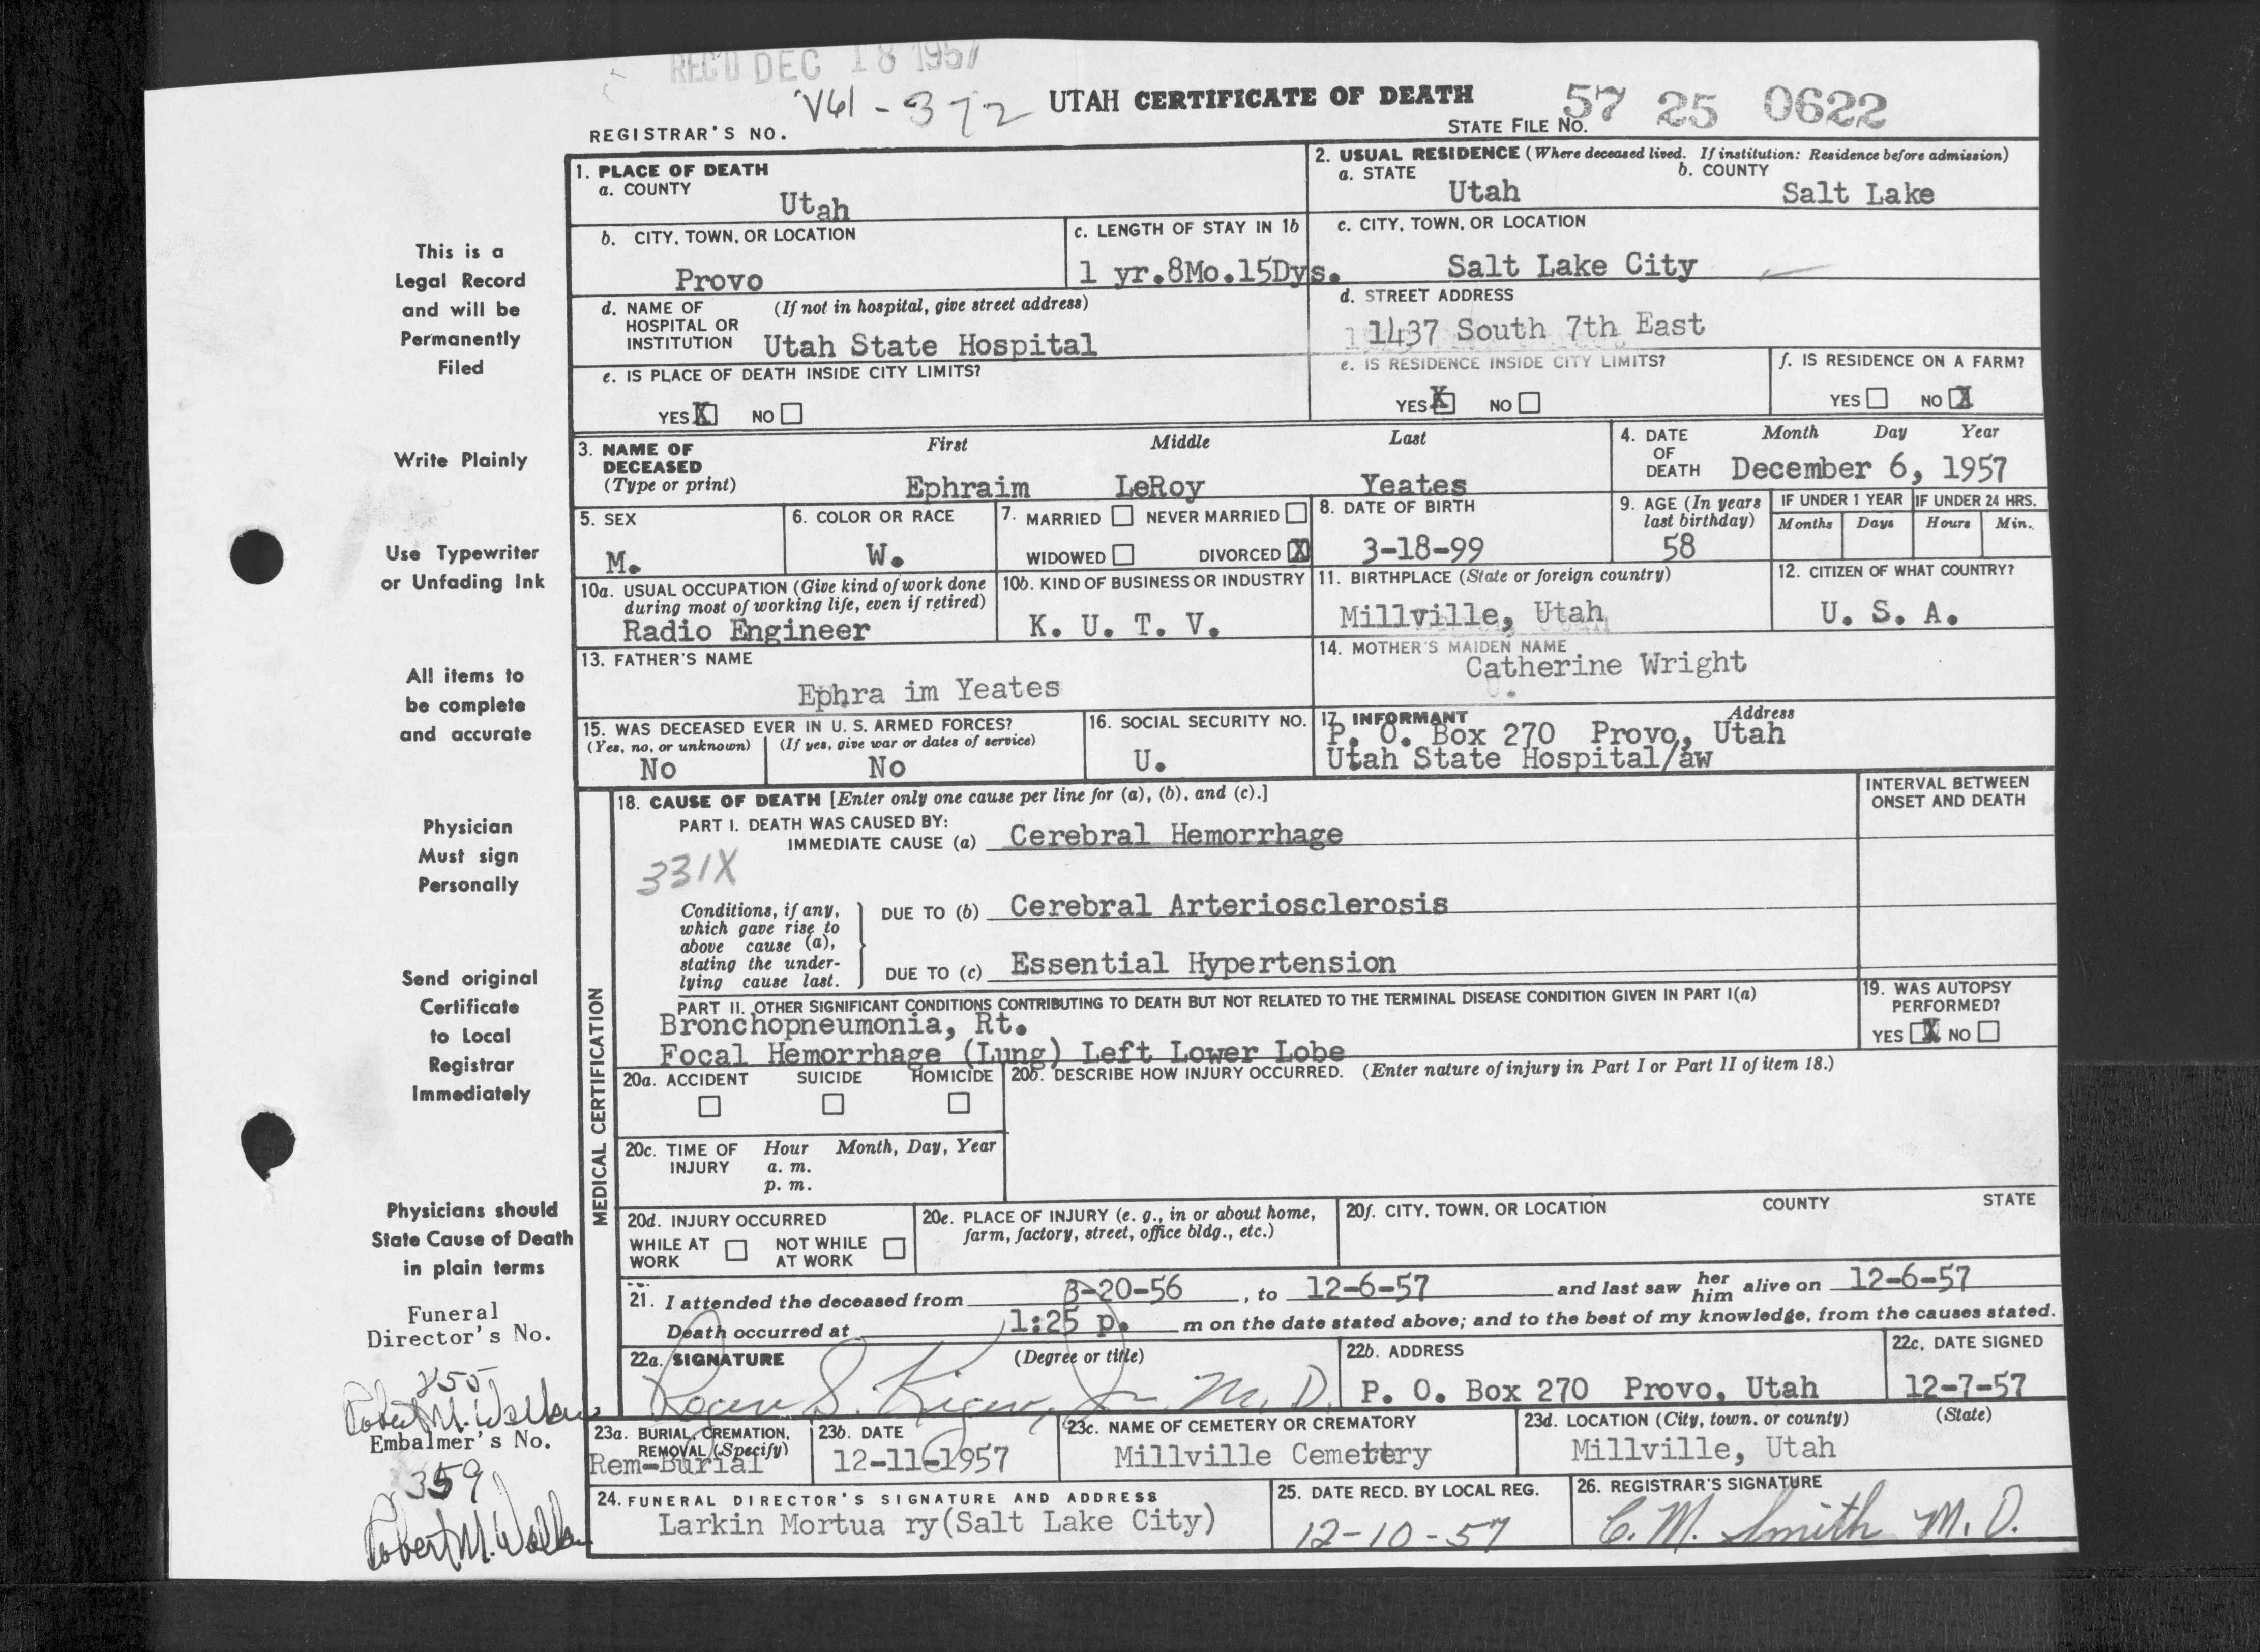 REC'D DEC 18 1957
V61-372
UTAH CERTIFICATE OF DEATH
57 25 0622
REGISTRAR'S NO.
STATE FILE NO.
1. PLACE OF DEATH
a. COUNTY
Utah
2. USUAL RESIDENCE (Where deceased lived. If institution: Residence before admission)
a. STATE
b. COUNTY
Utah
Salt Lake
b. CITY, TOWN, OR LOCATION
Provo
c. LENGTH OF STAY IN 1b
1 yr.8Mo.15Dys.
c. CITY, TOWN, OR LOCATION
Salt Lake City
d. NAME OF (If not in hospital, give street address)
HOSPITAL OR
INSTITUTION
Utah State Hospital
d. STREET ADDRESS
1437 South 7th East
e. IS PLACE OF DEATH INSIDE CITY LIMITS?
YES X NO
e. IS RESIDENCE INSIDE CITY LIMITS?
YES X NO
f. IS RESIDENCE ON A FARM?
YES NO X
3. NAME OF
DECEASED
(Type or print)
First Middle Last
Ephraim LeRoy Yeates
4. DATE
OF
DEATH
Month Day Year
December 6, 1957
5. SEX
M.
6. COLOR OR RACE
W.
7. MARRIED NEVER MARRIED
WIDOWED DIVORCED X
8. DATE OF BIRTH
3-18-99
9. AGE (In years
last birthday)
58
IF UNDER 1 YEAR
Months Days
IF UNDER 24 HRS.
Hours Min.
10a. USUAL OCCUPATION (Give kind of work done
during most of working life, even if retired)
Radio Engineer
10b. KIND OF BUSINESS OR INDUSTRY
K. U. T. V.
11. BIRTHPLACE (State or foreign country)
Millville, Utah
12. CITIZEN OF WHAT COUNTRY?
U. S. A.
13. FATHER'S NAME
Ephra im Yeates
14. MOTHER'S MAIDEN NAME
Catherine Wright
U.
15. WAS DECEASED EVER IN U. S. ARMED FORCES?
(Yes, no, or unknown) (If yes, give war or dates of service)
No No
16. SOCIAL SECURITY NO.
U.
17. INFORMANT Address
P. O. Box 270 Provo, Utah
Utah State Hospital/aw
18. CAUSE OF DEATH [Enter only one cause per line for (a), (b), and (c).]
INTERVAL BETWEEN
ONSET AND DEATH
PART I. DEATH WAS CAUSED BY:
IMMEDIATE CAUSE (a) Cerebral Hemorrhage
331X
Conditions, if any,
which gave rise to
above cause (a),
stating the under-
lying cause last.
DUE TO (b) Cerebral Arteriosclerosis
DUE TO (c) Essential Hypertension
PART II. OTHER SIGNIFICANT CONDITIONS CONTRIBUTING TO DEATH BUT NOT RELATED TO THE TERMINAL DISEASE CONDITION GIVEN IN PART I(a)
Bronchopneumonia, Rt.
Focal Hemorrhage (Lung) Left Lower Lobe
19. WAS AUTOPSY
PERFORMED?
YES X NO
20a. ACCIDENT SUICIDE HOMICIDE
20b. DESCRIBE HOW INJURY OCCURRED. (Enter nature of injury in Part I or Part II of item 18.)
20c. TIME OF Hour Month, Day, Year
INJURY a. m.
p. m.
20d. INJURY OCCURRED
WHILE AT NOT WHILE
WORK AT WORK
20e. PLACE OF INJURY (e. g., in or about home,
farm, factory, street, office bldg., etc.)
20f. CITY, TOWN, OR LOCATION COUNTY STATE
21. I attended the deceased from 3-20-56, to 12-6-57 and last saw her him alive on 12-6-57
Death occurred at 1:25 p. m on the date stated above; and to the best of my knowledge, from the causes stated.
22a. SIGNATURE (Degree or title)
M. D.
22b. ADDRESS
P. O. Box 270 Provo, Utah
22c. DATE SIGNED
12-7-57
23a. BURIAL, CREMATION,
REMOVAL (Specify)
Rem-Burial
23b. DATE
12-11-1957
23c. NAME OF CEMETERY OR CREMATORY
Millville Cemettry
23d. LOCATION (City, town, or county) (State)
Millville, Utah
24. FUNERAL DIRECTOR'S SIGNATURE AND ADDRESS
Larkin Mortua ry(Salt Lake City)
25. DATE RECD. BY LOCAL REG.
12-10-57
26. REGISTRAR'S SIGNATURE
C. M. Smith M. D.
MEDICAL CERTIFICATION
This is a
Legal Record
and will be
Permanently
Filed
Write Plainly
Use Typewriter
or Unfading Ink
All items to
be complete
and accurate
Physician
Must sign
Personally
Send original
Certificate
to Local
Registrar
Immediately
Physicians should
State Cause of Death
in plain terms
Funeral
Director's No.
Robert M.
Embalmer's No.
359
Robert M.